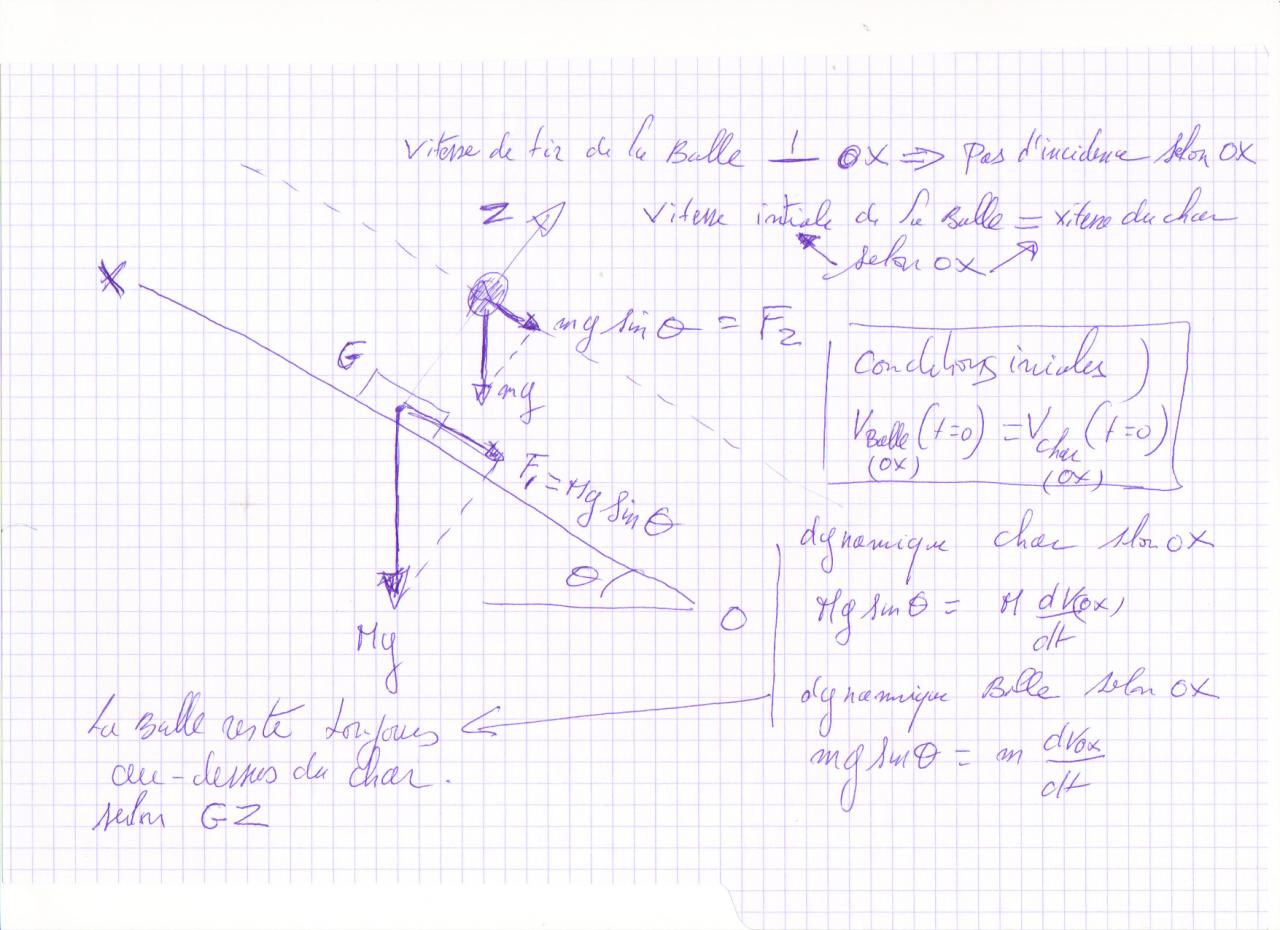 Vitesse de tir de la Balle ⊥ OX ⇒ Pas d'incidence selon OX
Z
Vitesse intiale de la Balle = vitesse du char
selon OX
X
mg sin θ = F2
G
mg
Conditions iniciales
VBalle (t=0) = Vchar (t=0)
(OX) (OX)
F1 = Mg sin θ
θ
O
Mg
dynamique char selon OX
Mg sin θ = M dV(OX)/dt
dynamique Balle selon OX
mg sin θ = m dVOX/dt
La Balle reste toujours
au-dessus du char.
selon GZ